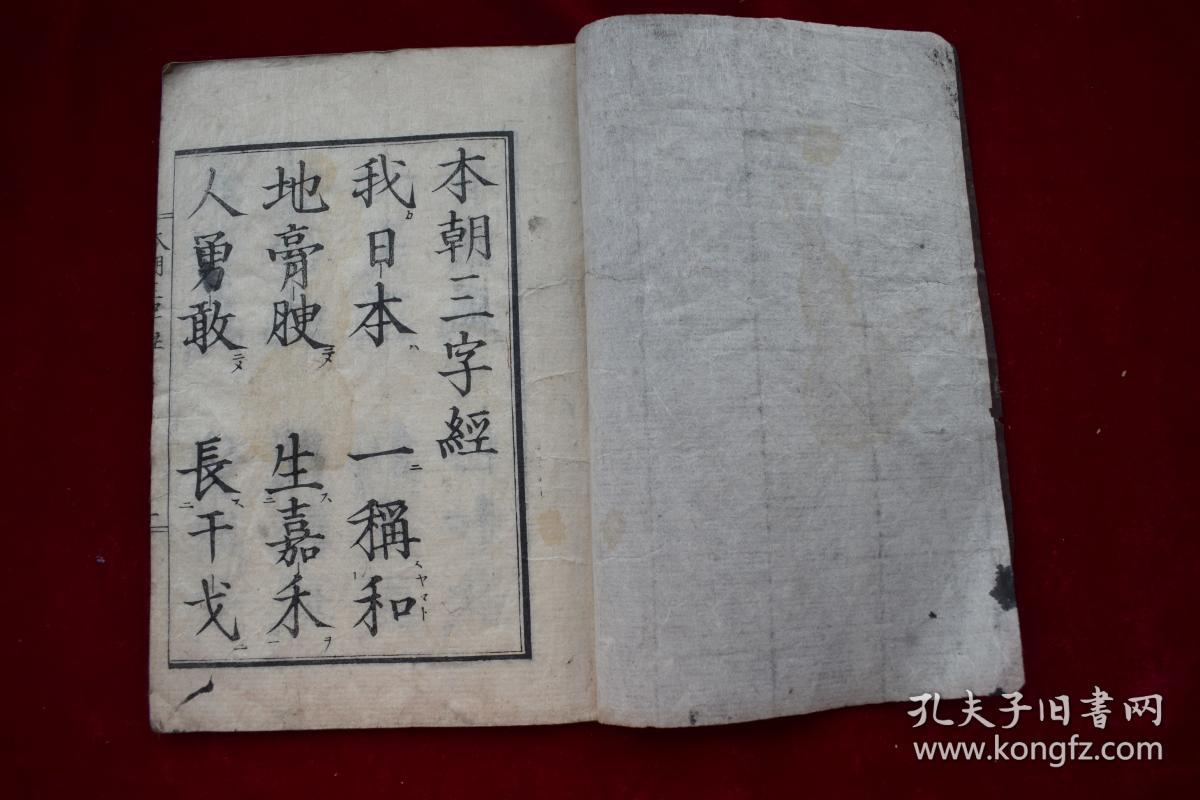 本朝三字經
我日本 一稱和
地膏腴 生嘉禾
人勇敢 長干戈
孔夫子旧書网
www.kongfz.com